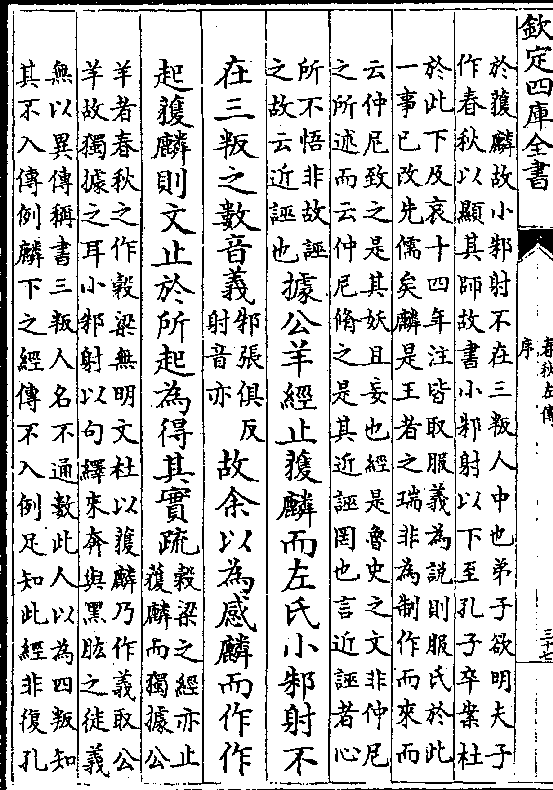 欽定四庫全書
春秋左傳
序
三十七
於獲麟故小邾射不在三叛人中也弟子欲明夫子
作春秋以顯其師故書小邾射以下至孔子卒案杜
於此下及哀十四年注皆取服義為說則服氏於此
一事已改先儒矣麟是王者之瑞非為制作而來而
云仲尼致之是其妖且妄也經是魯史之文非仲尼
之所述而云仲尼脩之是其近誣罔也言近誣者心
所不悟非故誣
之故云近誣也
據公羊經止獲麟而左氏小邾射不
在三叛之數音義
邾張俱反
射音亦
故余以為感麟而作作
起獲麟則文止於所起為得其實疏
穀梁之經亦止
獲麟而獨據公
羊者春秋之作穀梁無明文杜以獲麟乃作義取公
羊故獨據之耳小邾射以句繹來奔與黑肱之徒義
無以異傳稱書三叛人名不通數此人以為四叛知
其不入傳例麟下之經傳不入例足知此經非復孔